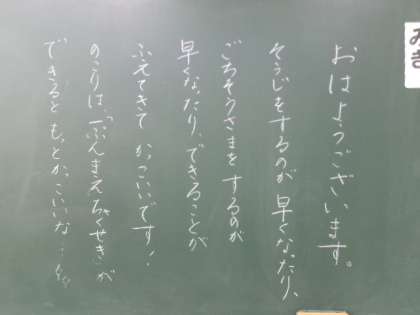 おはようございます。
そうじをするのが 早くなったり、
ごちそうさまをするのが
早くなったり、できることが
ふえてきて かっこいいです!
のこりは「一ぷんまえちゃくせき」が
できると もっとかっこいいな…